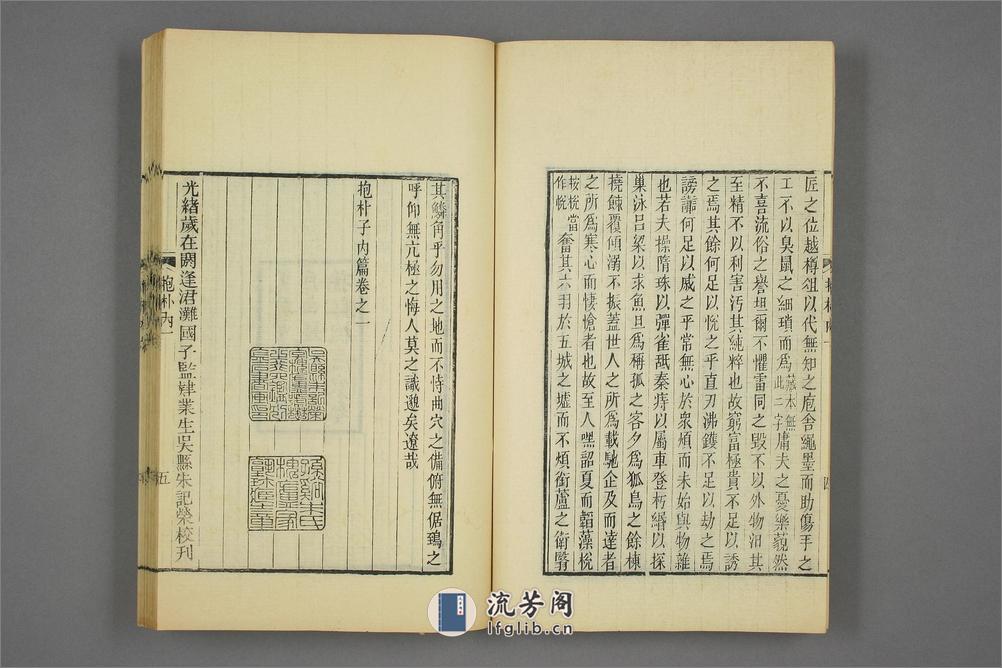 匠之位越樽俎以代無知之庖舍繩墨而助傷手之
工不以臭鼠之細瑣而爲藏本無此二字庸夫之憂樂藐然
不喜流俗之譽坦爾不懼雷同之毀不以外物汨其
至精不以利害污其純粹也故窮富極貴不足以誘
之焉其餘何足以悅之乎直刃沸鑊不足以劫之焉
謗讟何足以戚之乎常無心於衆煩而未始與物雜
也若夫操隋珠以彈雀舐秦痔以屬車登朽緡以探
巢泳呂梁以求魚旦爲稱孤之客夕爲狐鳥之餘棟
撓餗覆傾溺不振蓋世人之所爲載馳企及而達者
之所爲寒心而悽愴者也故至人嘿韶夏而韜藻梲
按梲當作帨奮其六羽於五城之墟而不煩銜蘆之衛翳
其鱗角乎勿用之地而不恃曲穴之備俯無倨鵄之
呼仰無亢極之悔人莫之識邈矣遼哉
抱朴子內篇卷之一
光緒歲在閼逢涒灘國子監肄業生吳縣朱記榮校刊
抱朴內一
五
四
流芳阁
lfglib.cn